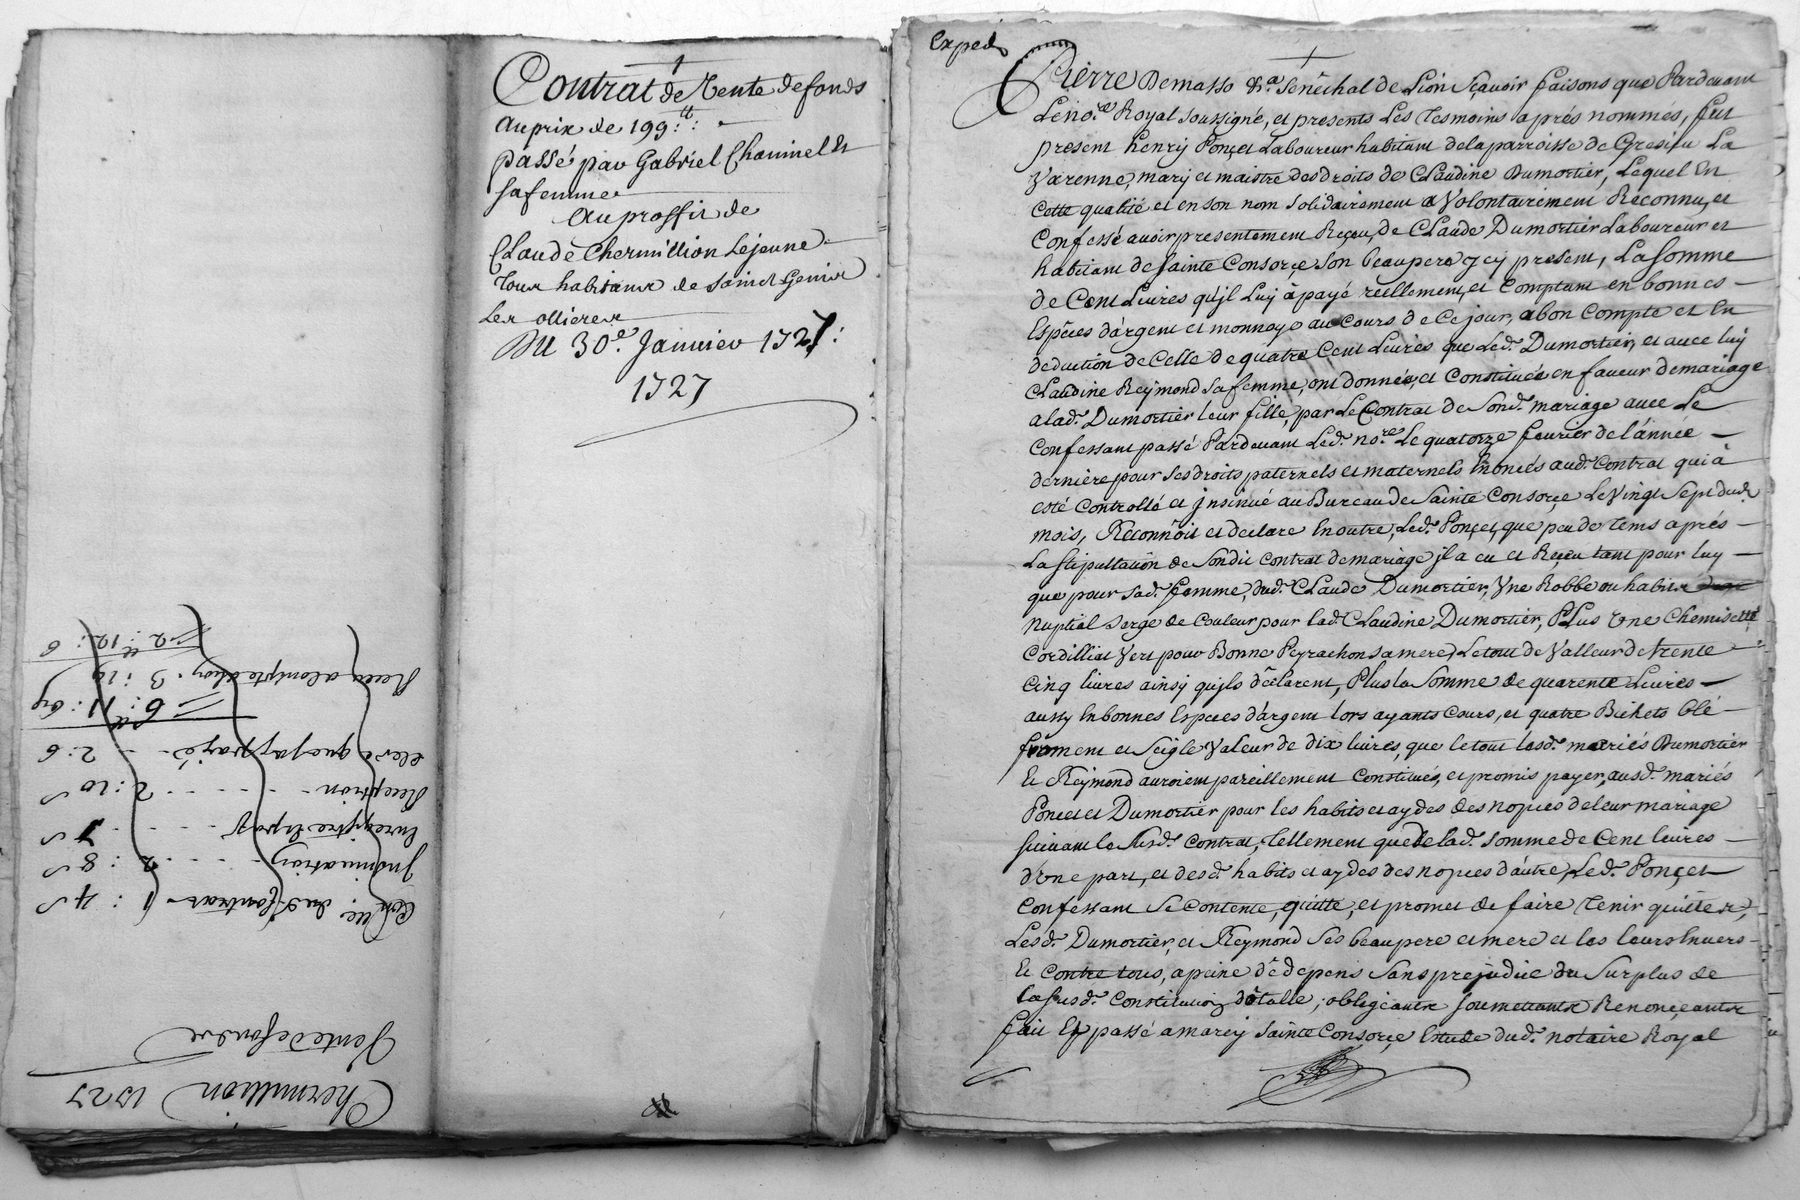 Contrat de Vente de fonds
Au prix de 199.tt:
passé par Gabriel Chaminel Et
sa femme
Au proffit de
Claude Chermillion Lejeune
Tous habitans de Saint Genis
Les ollieres
Du 30e. Janvier 1727:
1727
Chermillion 1727
Vente de fonds
du Contrat 1: 4 s
Insinuation 2: 8 s
Reception 2: 10 s
2: 6
6tt: 11: 6
Receu a compte 3: 19
2tt: 12: 6
Exped
Pierre Demasso &a. Sénéchal de Lion Sçavoir faisons que Pardevant
Le no.re Royal soussigné, et presents Les Tesmoins aprés nommés, fut
present henry Ponçet Laboureur habitant de la parroisse de Gresieu La
Varenne, mary et maistre des droits de Claudine Dumortier, Lequel En
Cette qualité et en son nom solidairement a Volontairement Reconnu, et
Confessé avoir presentement Reçeu, de Claude Dumortier Laboureur et
habitant de Sainte Consorçe son beaupere jcy present, La somme
de Cent Livres qu'jl Luy à payé reellement, et Comptant en bonnes
Espéces d'argent et monnoye au cours de Ce jour, a bon Compte et En
deduction de Celle de quatre Cent Livres que Led. Dumortier, et avec luy
Claudine Reymond sa femme, ont donnée, et Constituée en faveur de mariage
a lad. Dumortier leur fille, par Le Contrat de Sond. mariage avec Le
Confessant passé Pardevant Led. no.re Le quatorze fevrier de l'année
derniere pour ses droits paternels et maternels Enoncés aud. Contrat qui à
esté Controllé et jnsinué au Bureau de Sainte Consorçe Le Vingt Sept dud.
mois, Reconnoit et declare En outre, Led. Ponçet, que peu de Tems aprés
La stipullation de Sondit Contrat de mariage jl a eu et Reçeu tant pour luy
que pour sad. femme, dud. Claude Dumortier, Vne Robbe ou habits
Nuptial serge de Couleur pour lad. Claudine Dumortier, Plus Vne Chemisette
Cordilliat Vert pour Bonne Peyrachon sa mere, Le tout de Valleur de trente
Cinq livres ainsy qu'jls déclarent, Plus la Somme de quarente Livres
aussy En bonnes Especes d'argent lors ayants Cours, et quatre Bichets blé
froment et Seigle Valeur de dix livres, que le tout lesd. mariés Dumortier
Et Reymond auroient pareillement Constitués, et promis payer, ausd. mariés
Poncet et Dumortier pour les habits et aydes des nopces de leur mariage
suivant le susd. Contrat, Tellement que de lad. somme de Cent livres
d'vne part, et desd. habits et aydes des nopces d'autre, Led. Ponçet
Confessant se Contente, quitte, et promet de faire Tenir quittes,
Lesd. Dumortier, et Reymond ses beaupere et mere et les leurs Envers
Et Contre tous, a peine de depens sans prejudice du Surplus de
la susd. Constitution dotalle; obligeants Soumettants Renonçeants
fait Et passé a marcy Sainte Consorçe Etude dud. notaire Royal